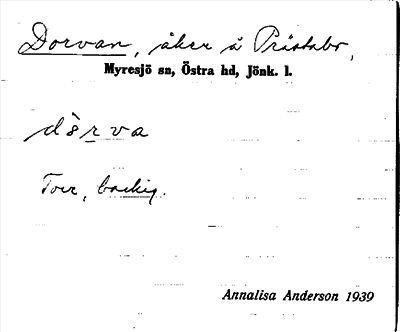 Dorvan, åker å Prästabo,
Myresjö sn, Östra hd, Jönk. l.
dòrva
Torr, backig.
Annalisa Anderson 1939